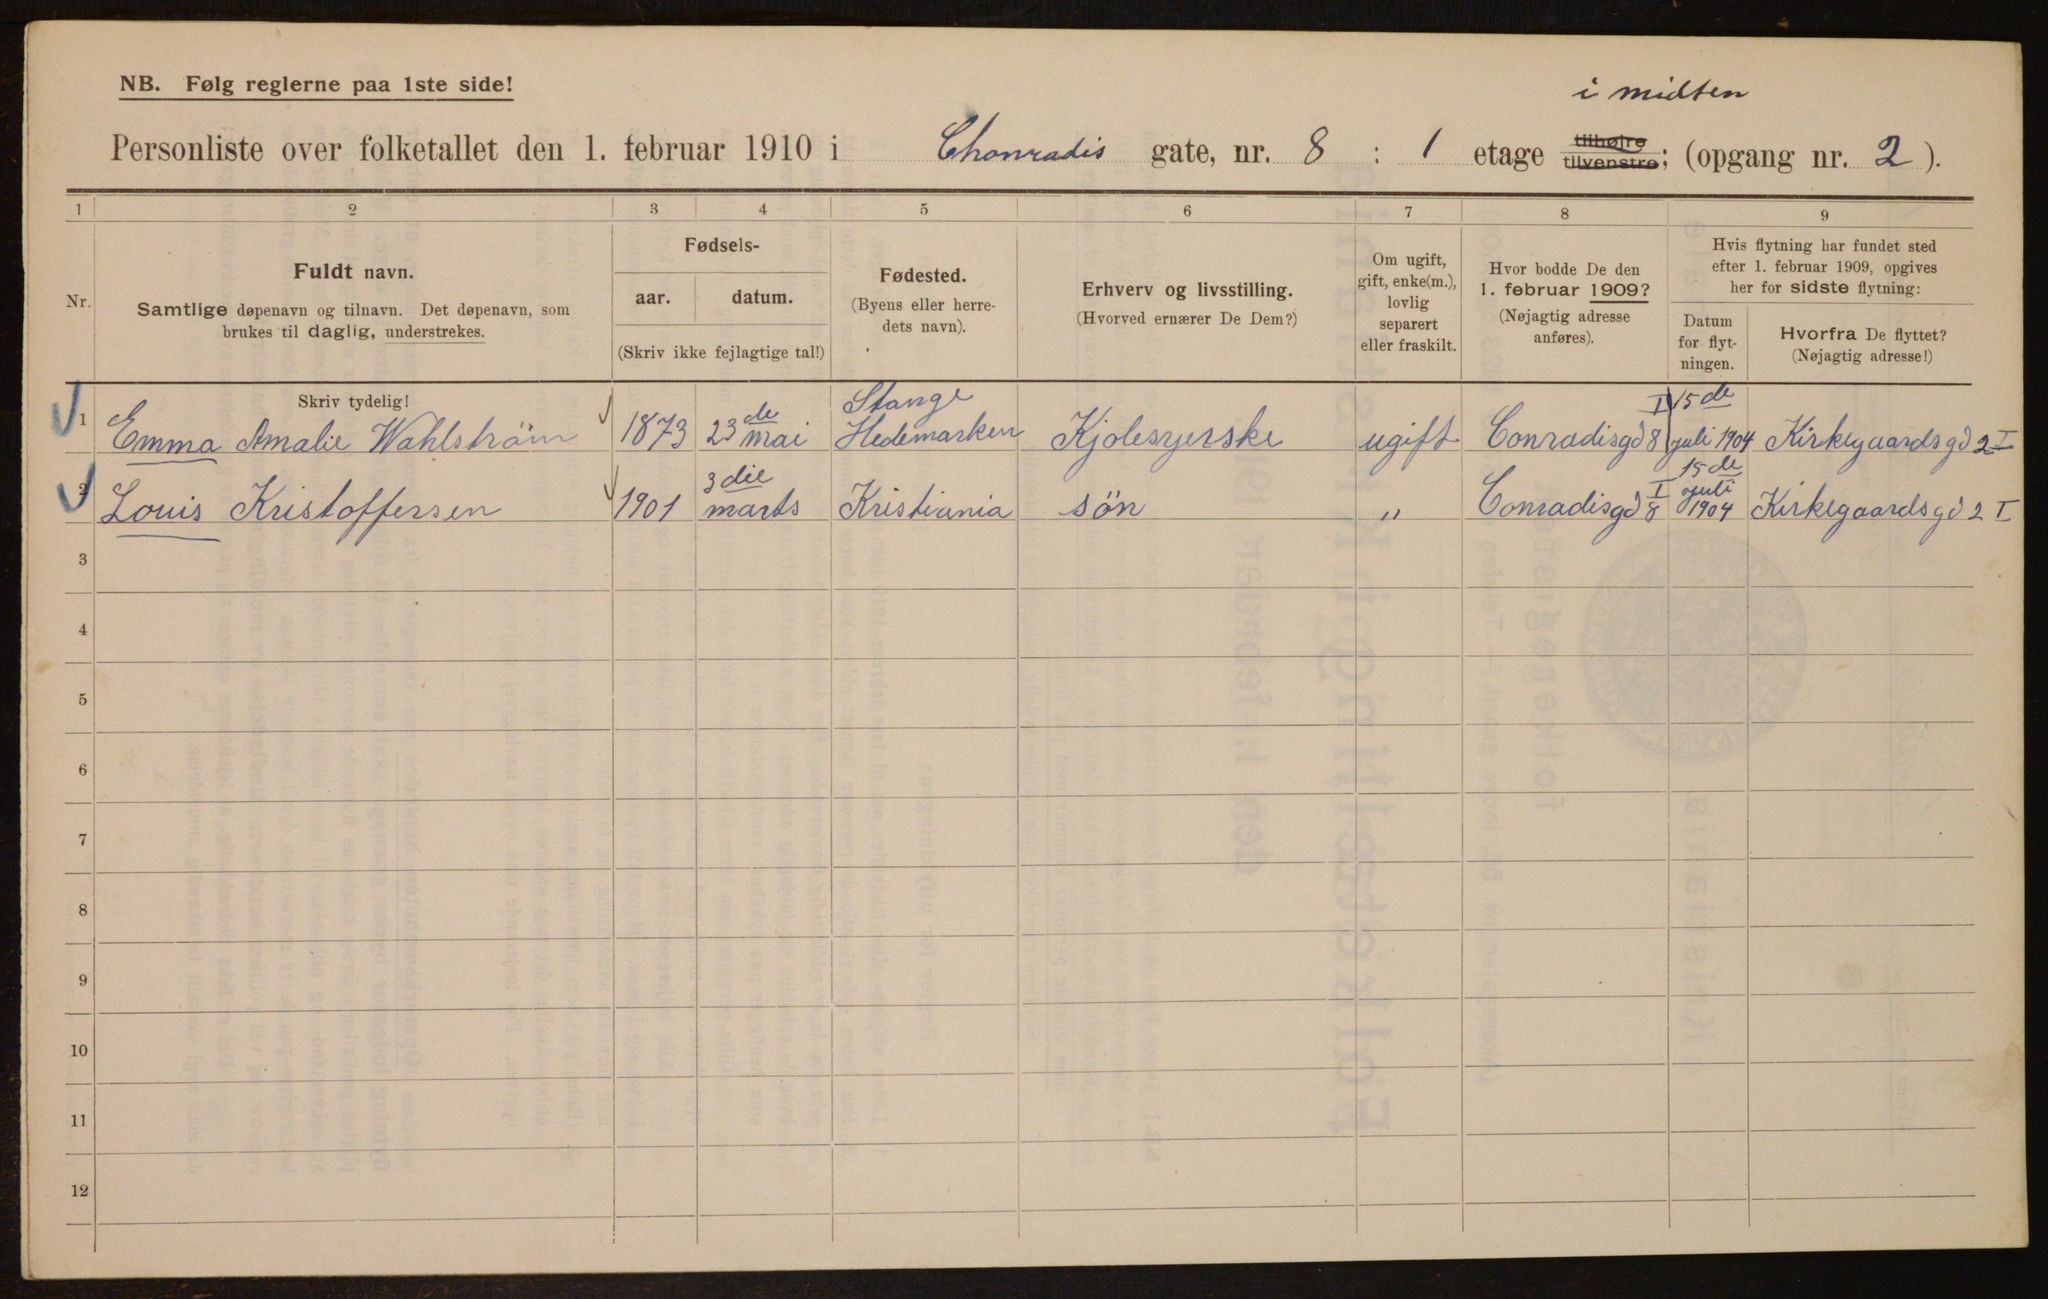 NB. Følg reglerne paa 1ste side!
i midten
Personliste over folketallet den 1. februar 1910 i Chonradis gate, nr. 8 : 1 etage tilhøjre tilvenstre; (opgang nr. 2).
1 2 3 4 5 6 7 8 9
Nr.
Fuldt navn.
Samtlige døpenavn og tilnavn. Det døpenavn, som
brukes til daglig, understrekes.
Fødsels-
aar. datum.
(Skriv ikke fejlagtige tal!)
Fødested.
(Byens eller herre-
dets navn).
Erhverv og livsstilling.
(Hvorved ernærer De Dem?)
Om ugift,
gift, enke(m.),
lovlig
separert
eller fraskilt.
Hvor bodde De den
1. februar 1909?
(Nøjagtig adresse
anføres).
Hvis flytning har fundet sted
efter 1. februar 1909, opgives
her for sidste flytning:
Datum
for flyt-
ningen.
Hvorfra De flyttet?
(Nøjagtig adresse!)
Skriv tydelig!
1 Emma Amalie Wahlström 1873 23de mai Stange Hedemarken Kjolesyerske ugift Conradisgd 8 I 15de juli 1904 Kirkegaardsgd 2 I
2 Louis Kristoffersen 1901 3die marts Kristiania søn " Conradisgd 8 I 15de juli 1904 Kirkegaardsgd 2 I
3
4
5
6
7
8
9
10
11
12